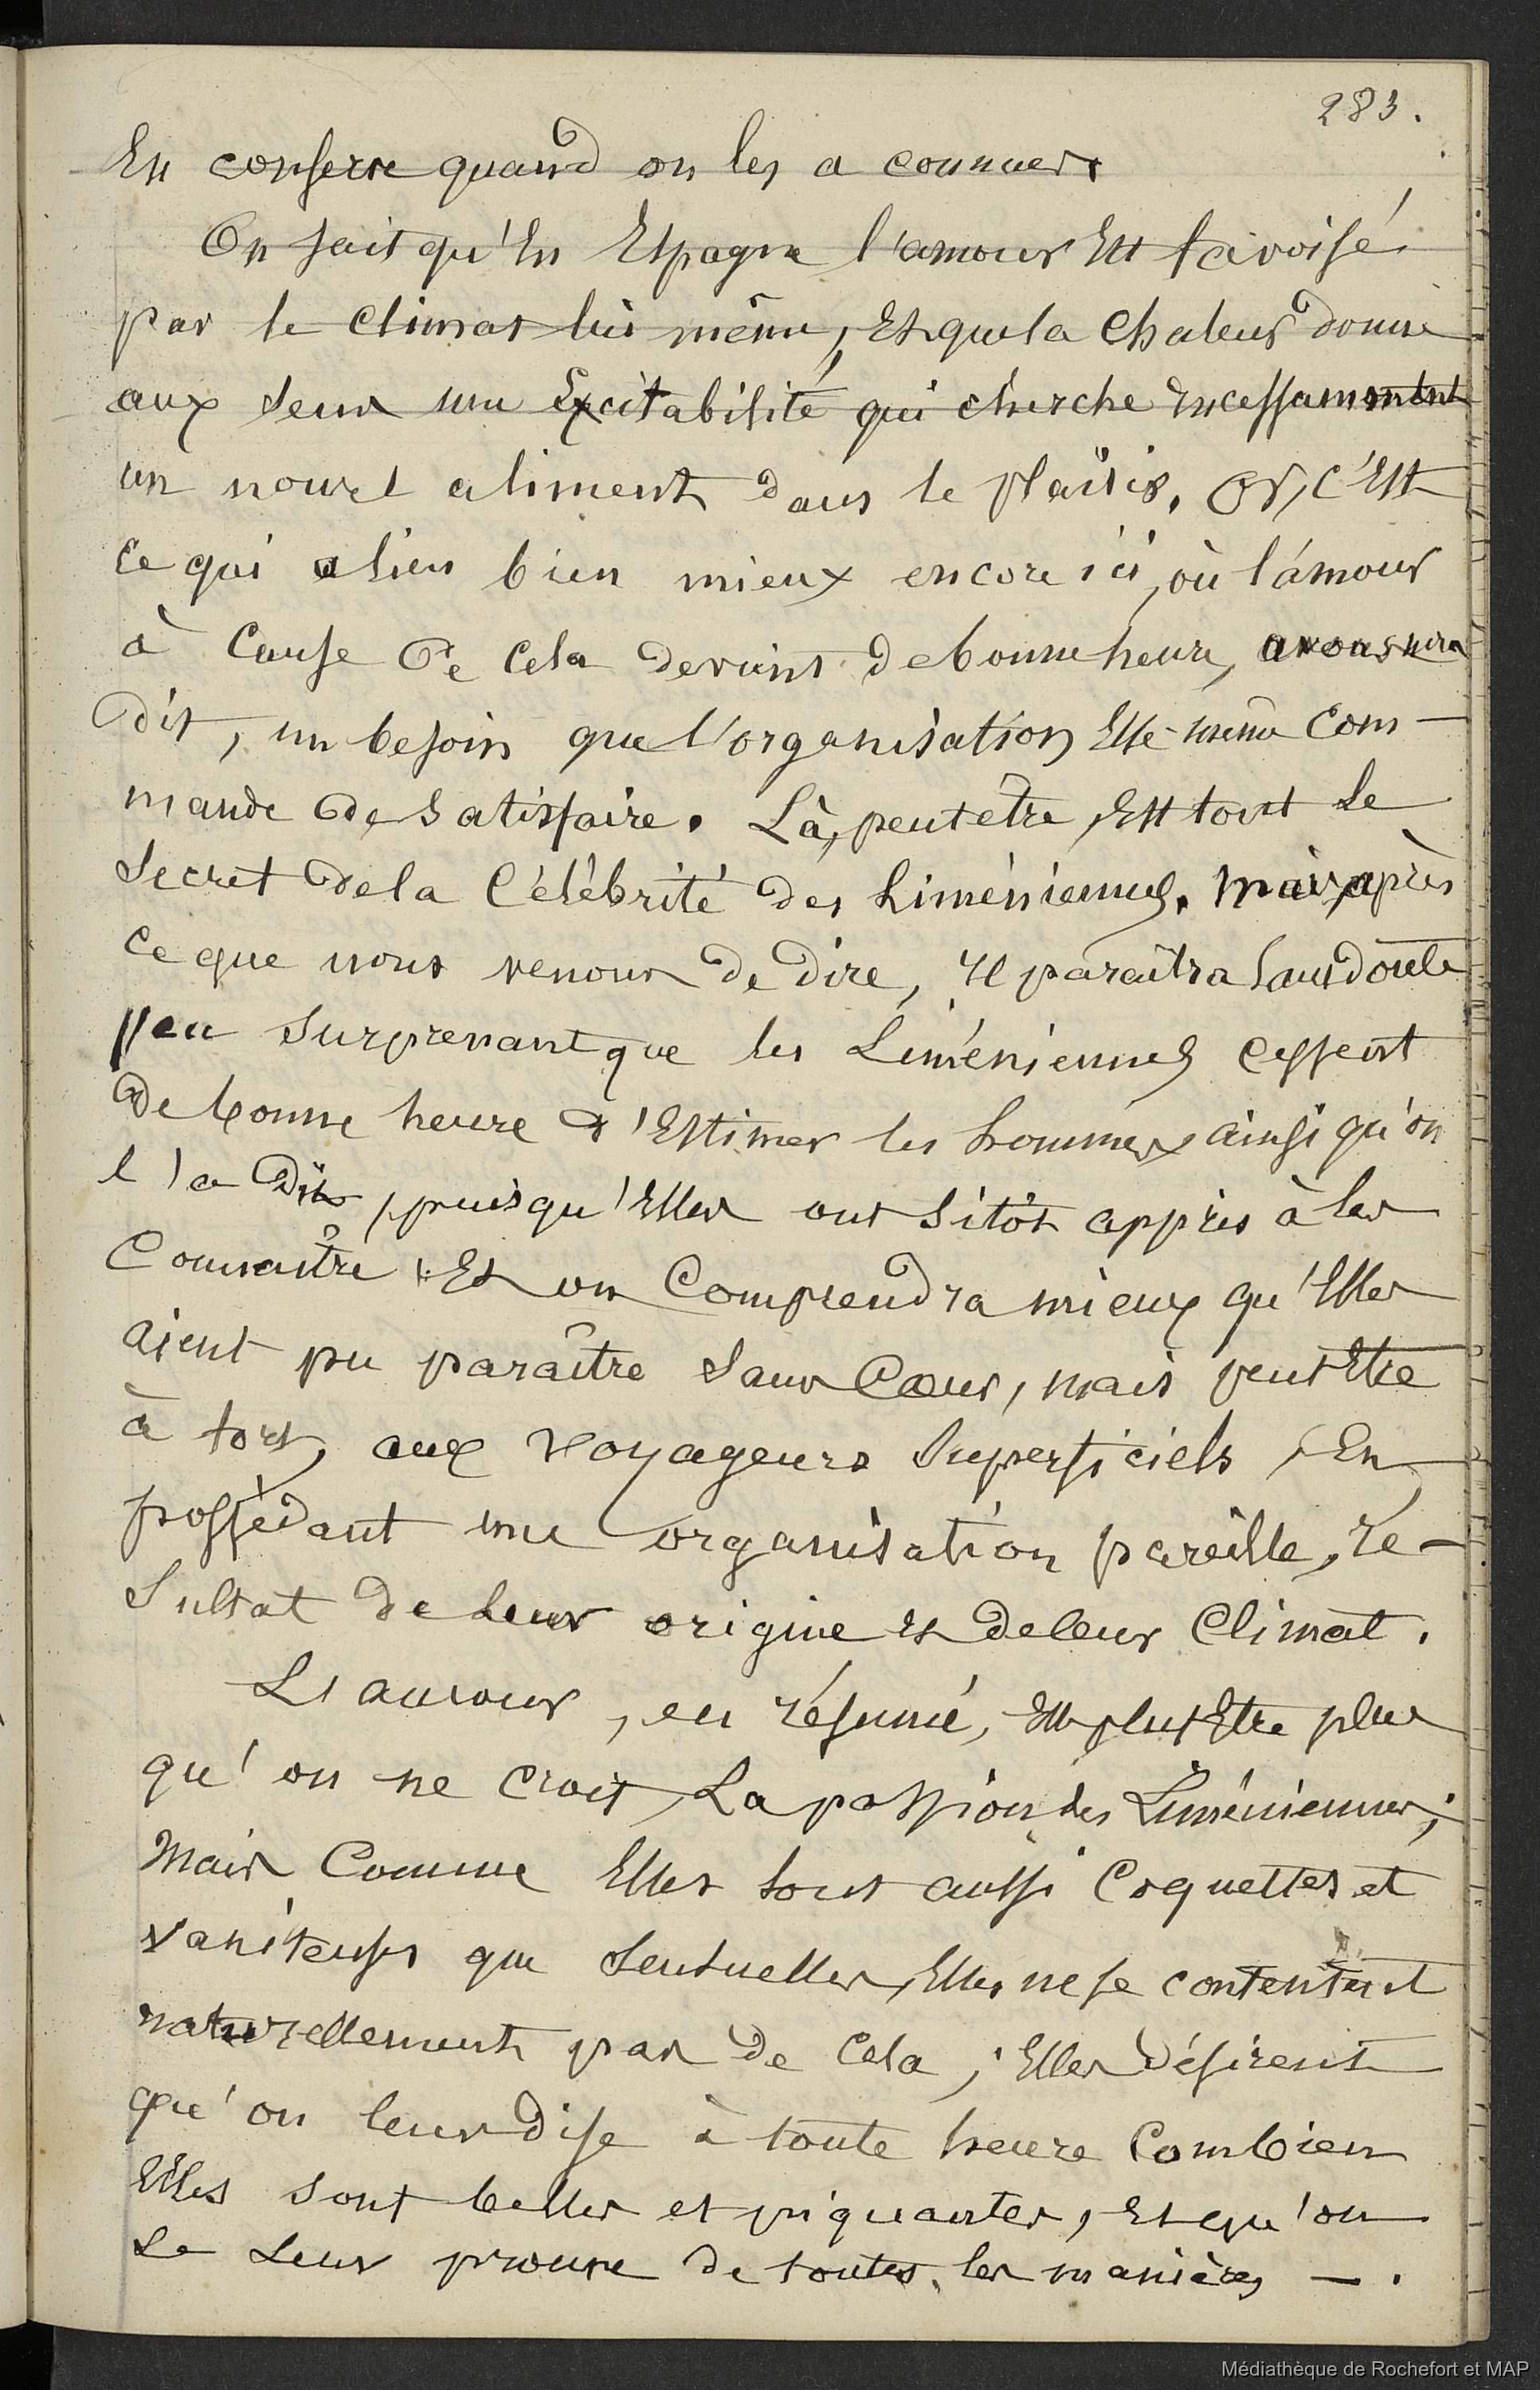 283.
En conserve quand on les a connues
On sait qu'En Espagne l'amour Est favoisé
par le climat lui même, Et que la chaleur donne
aux sens une Excitabilité qui cherche incessamment
un nouvel aliment dans le plaisir. Or, c'Est
ce qui a lieu bien mieux encore ici, où l'amour
à cause de cela devient de bonne heure, avons nous
dit, un besoin que l'organisation Elle-même com-
mande de satisfaire. Là, peut être, Est tout le
secret de la célébrité des Liméniennes. Mais, après
ce que nous venons de dire, il paraîtra sans doute
peu surprenant que les Liméniennes cessent
de bonne heure d'Estimer les hommes ainsi qu'on
l'a dit, puisqu'Elles ont sitôt appris à les
connaître. Et on comprendra mieux qu'Elles
aient pu paraître sans cœur, mais peut Etre
à tort, aux voyageurs superficiels, En
possèdant une organisation pareille, ré-
sultat de leur origine et de leur climat.
L'amour, en résumé, Est peut Etre plus
qu'on ne croit, la passion des Liméniennes;
Mais comme Elles sont aussi coquettes et
vaniteuses que sensuelles, Elles ne se contentent
naturellement pas de cela; Elles désirent
qu'on leur dise à toute heure combien
Elles sont belles et piquantes, Et qu'on
le leur prouve de toutes les manières —.
Médiathèque de Rochefort et MAP